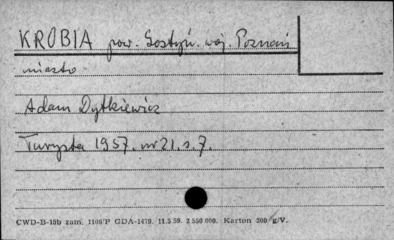 KROBIA pow. Gostyń. woj. Poznań
miasto
Adam Dytkiewicz
Turysta 1957. nr 21. s. 7.
CWD-B-15b zam. 1106/P GDA-1479. 11.5.59. 2 550 000. Karton 200 g/V.